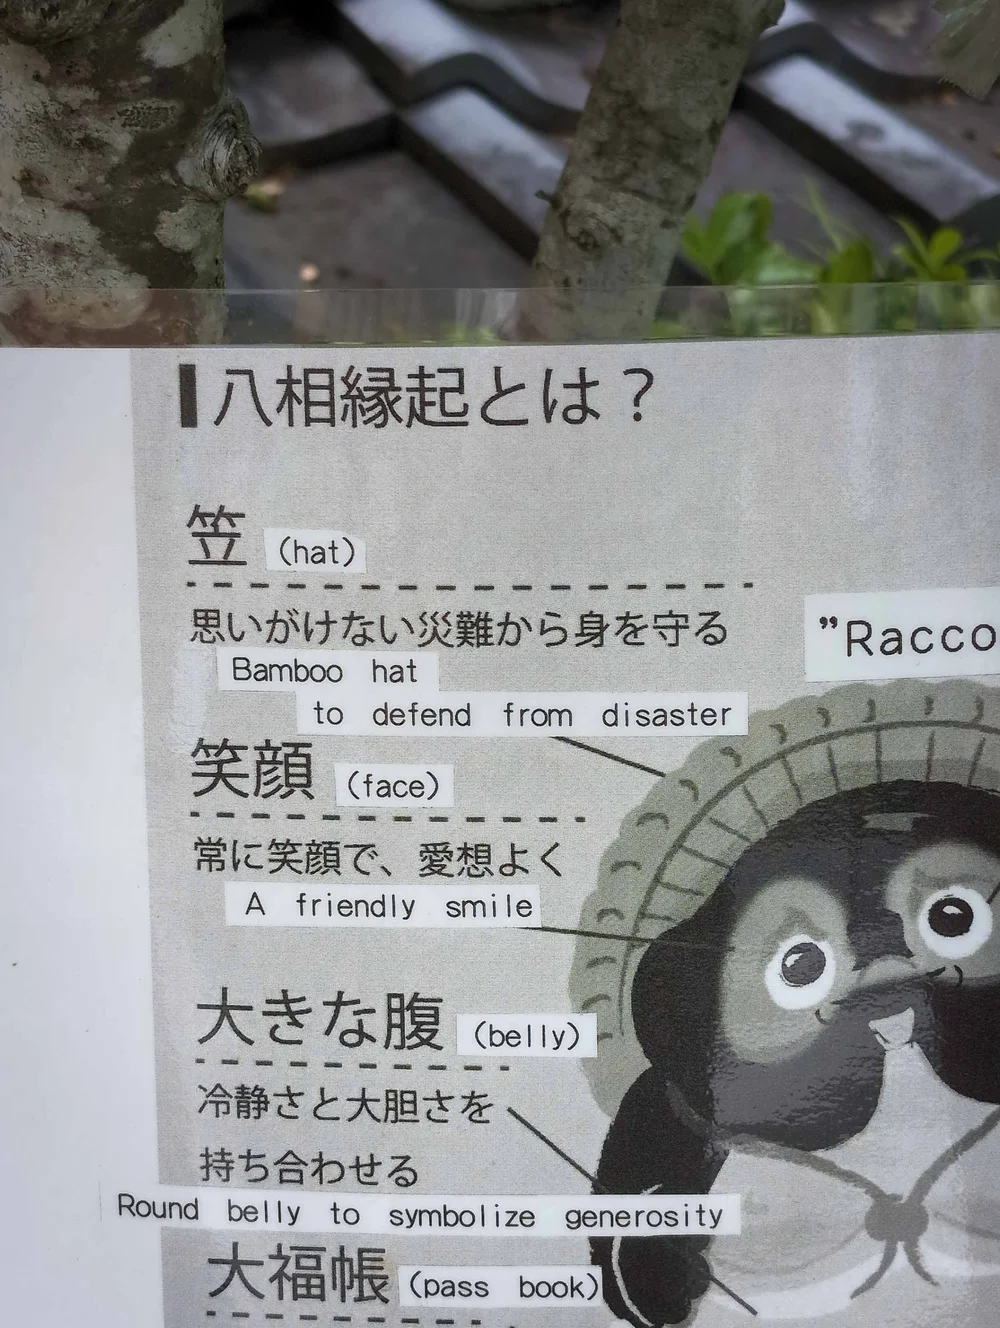 八相縁起とは？
笠 (hat)
思いがけない災難から身を守る
Bamboo hat
to defend from disaster
"Racco
笑顔 (face)
常に笑顔で、愛想よく
A friendly smile
大きな腹 (belly)
冷静さと大胆さを
持ち合わせる
Round belly to symbolize generosity
大福帳 (pass book)